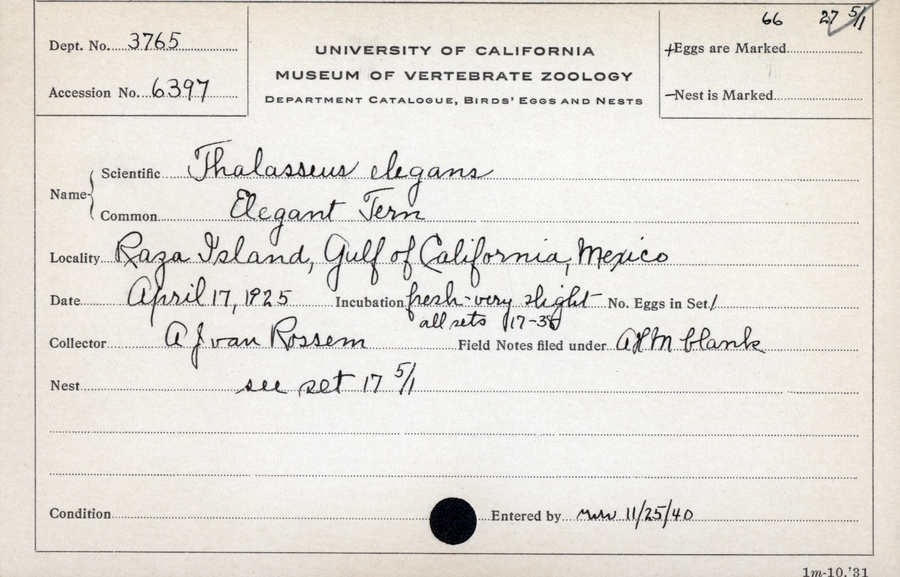 66 27 5/1
Dept. No. 3765
UNIVERSITY OF CALIFORNIA
+Eggs are Marked
MUSEUM OF VERTEBRATE ZOOLOGY
Accession No. 6397
DEPARTMENT CATALOGUE, BIRDS' EGGS AND NESTS
—Nest is Marked
Name { Scientific Thalasseus elegans
Common Elegant Tern
Locality Raza Island, Gulf of California, Mexico
Date April 17, 1925 Incubation fresh-very slight No. Eggs in Set 1
all sets 17-38
Collector A J van Rossem Field Notes filed under AHM blank
Nest see set 17 5/1
Condition Entered by mw 11/25/40
1m-10,'31